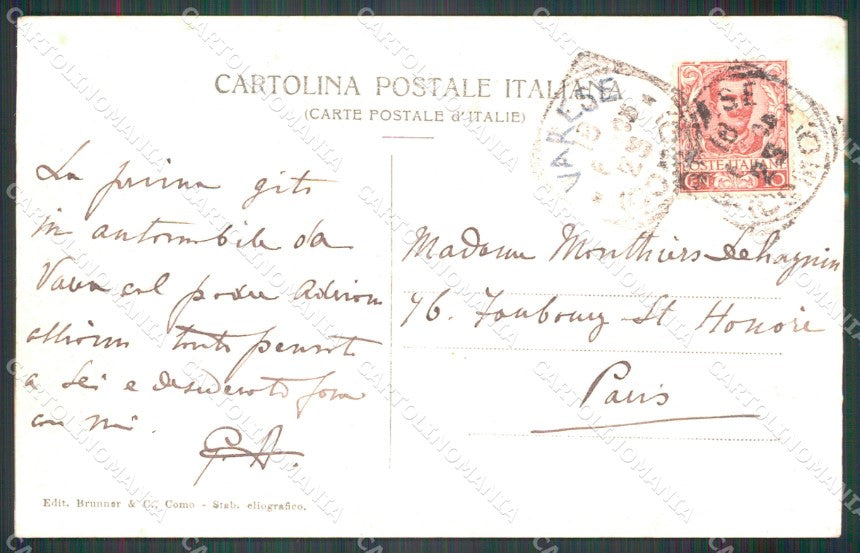 CARTOLINA POSTALE ITALIANA
(CARTE POSTALE d'ITALIE)
VARESE
POSTE ITALIANE
CENT 10
La prima gita
in automobile da
col
abbiamo tanto pensato
a Lei e desiderato fosse
con noi.
G.A.
Madame Monthiers Lehagnin
96. Faubourg St Honoré
Paris
Edit. Brunner & C., Como - Stab. eliografico.
CARTOLINOMANIA